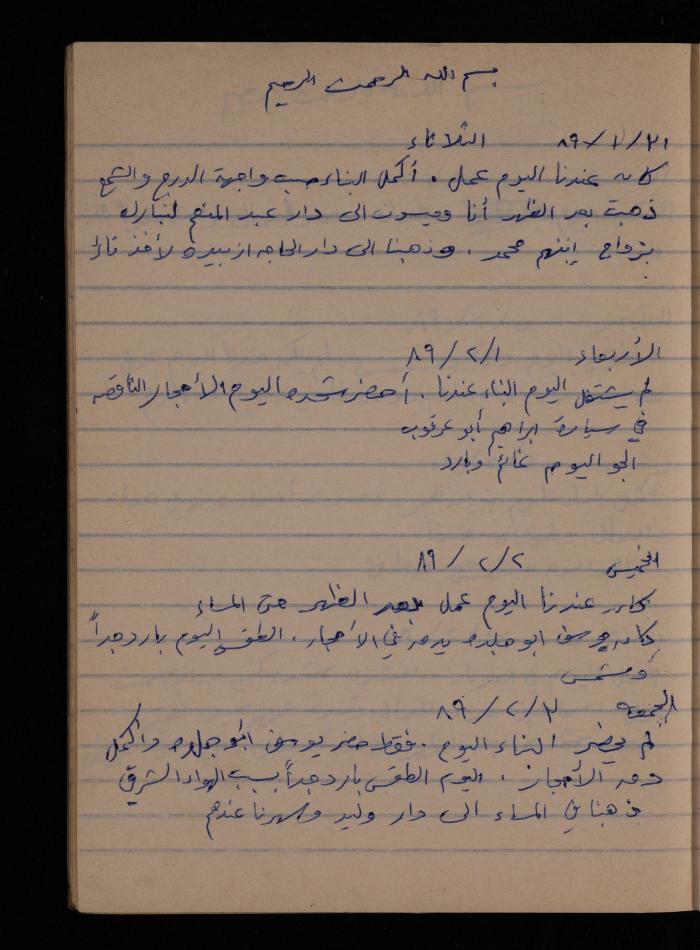 بسم الله الرحمن الرحيم
الثلاثاء ٨٩/١/٣١
كان عندنا اليوم عمل . أكمل البناء صب واجهة الدرج والشمع
ذهبت بعد الظهر أنا وميسون الى دار عبد المنعم لنبارك
بزواج إبنهم محمد . وذهبنا الى دار الحاجه ازبيده لأخذ
الأربعاء ٨٩/٢/١
لم يشتغل اليوم البناء عندنا . أحضر شحده اليوم الأحجار الناقصه
في سيارة ابراهيم أبو عرقوب
الجو اليوم غائم وبارد
الخميس ٨٩/٢/٢
كان عندنا اليوم عمل بعد الظهر حتى المساء
كان يوسف ابو جلده يدق في الأحجار . الطقس اليوم بارد جداً
ومشمس
الجمعه ٨٩/٢/٣
لم يحضر البناء اليوم . فقط حضر يوسف ابو جلده واكمل
دق الأحجار . اليوم الطقس بارد جداً بسبب الهواء الشرقي
ذهبنا في المساء الى دار وليد وسهرنا عندهم